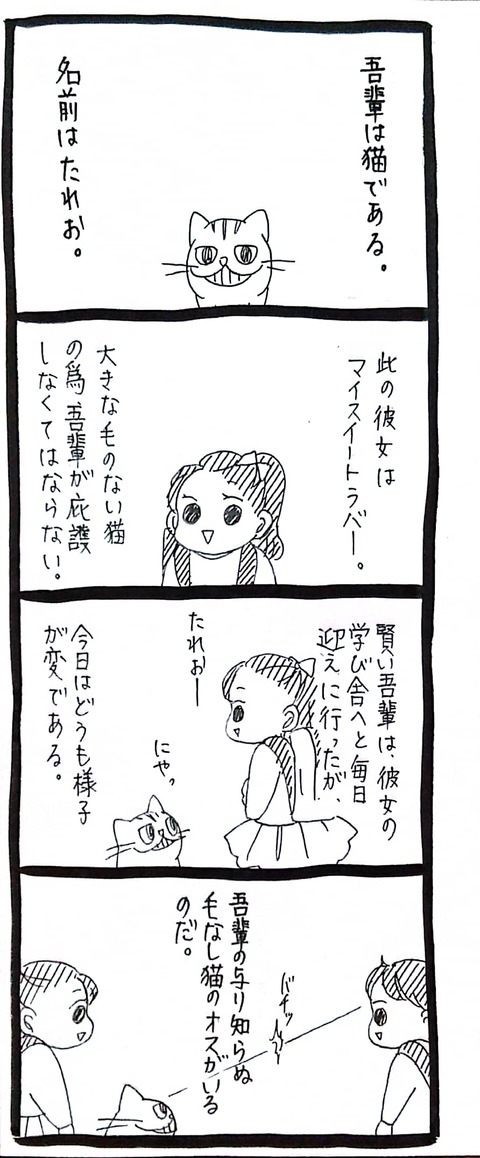 吾輩は猫である。
名前はたれお。
此の彼女は
マイスイートラバー。
大きな毛のない猫
の為、吾輩が庇護
しなくてはならない。
賢い吾輩は、彼女の
学び舎へと毎日
迎えに行ったが、
たれおー
にゃっ
今日はどうも様子
が変である。
バチッ
吾輩の与り知らぬ
毛なし猫のオスがいる
のだ。